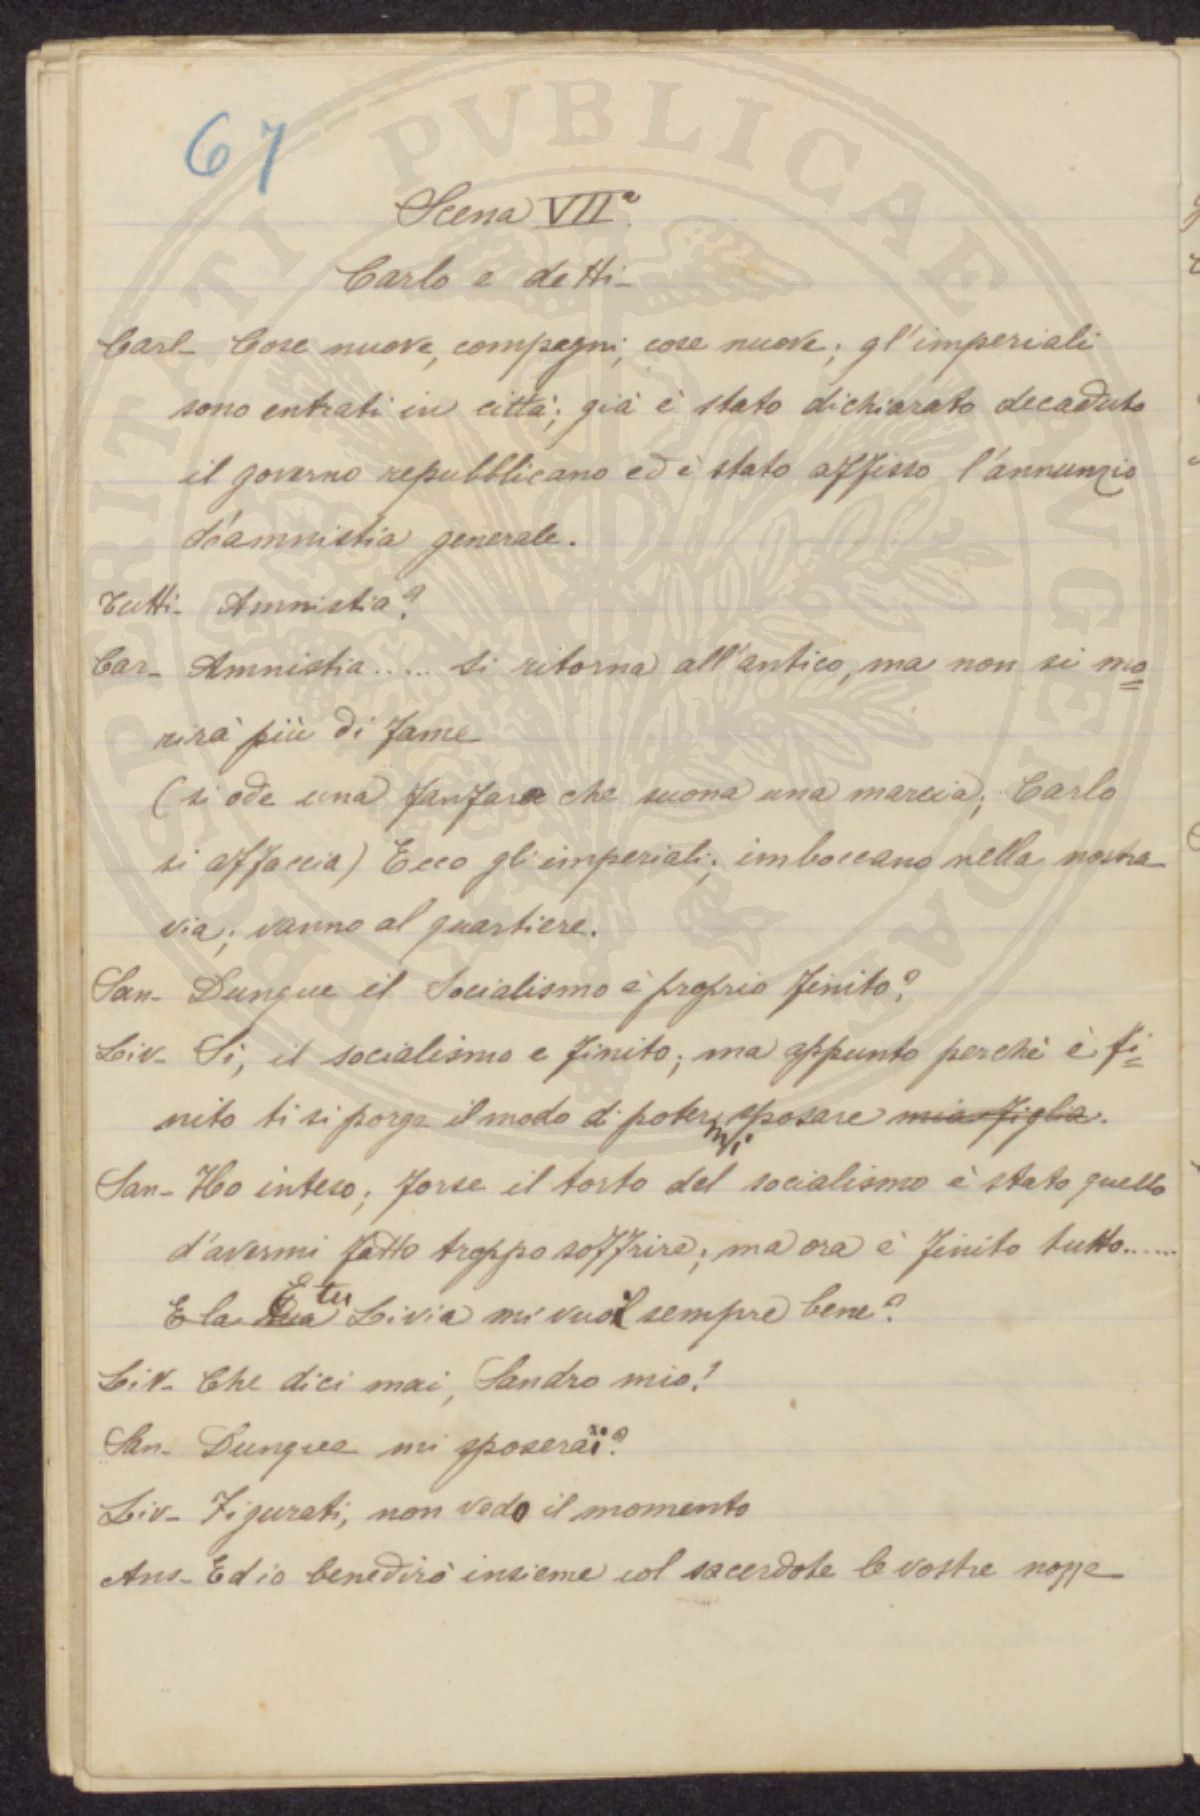 67
Scena VIIª
Carlo e detti-
Carl- Cose nuove, compagni, cose nuove; gl'imperiali
sono entrati in città; già è stato dichiarato decaduto
il governo repubblicano ed è stato affisso l'annunzio
d'amnistia generale.
Tutti- Amnistia?
Car- Amnistia ..... Si ritorna all'antico, ma non si mo=
rirà più di fame
(si ode una fanfara che suona una marcia; Carlo
si affaccia) Ecco gli imperiali; imboccano nella nostra
via; vanno al quartiere.
San- Dunque il Socialismo è proprio finito?
Liv- Sì, il socialismo e finito; ma appunto perchè è fi=
nito ti si porge il modo di potermi sposare mia figlia.
San- Ho inteso; forse il torto del socialismo è stato quello
d'avermi fatto troppo soffrire; ma ora è finito tutto......
E tu
E la sua Livia mi vuoi sempre bene?
Liv- Che dici mai, Sandro mio!
San- Dunque mi sposerai?
Liv- Figurati, non vedo il momento
Ans- Ed io benedirò insieme col sacerdote le vostre nozze
PROSPERITATI PVBLICAE AVGENDAE